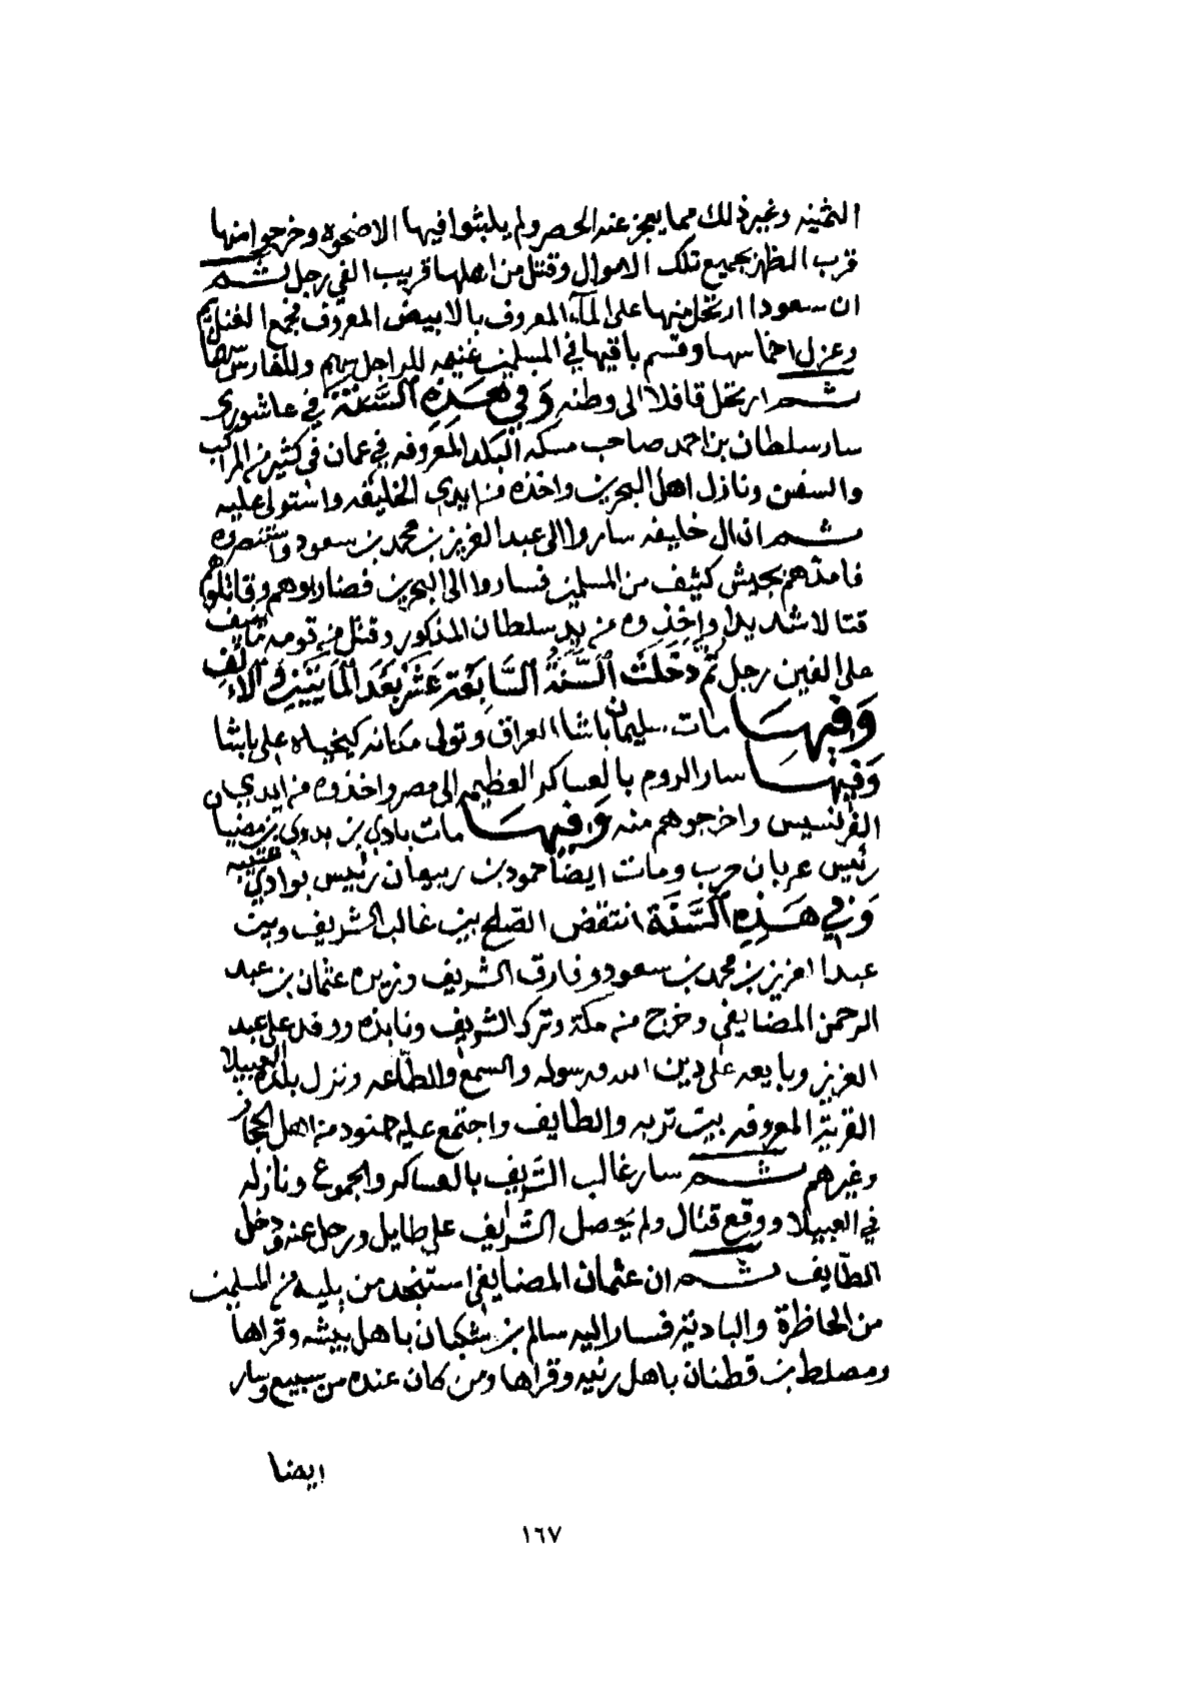 الثمينه وغير ذلك مما يعجز عنه الحصر ولم يلبثوا فيها الا ضحوه وخرجوا منها
قرب الظهر بجميع تلك الاموال وقتل من اهلها قريب الفي رجل ثم
ان سعودا ارتحل منها على المآء المعروف بالابيض المعروف فجمع الغنائم
وعزل اخماسها وقسم باقيها في المسلمين غنيمه للراجل سهم وللفارس سهمان
ثم ارتحل قافلا الى وطنه وَفي هَذِهِ السَّنَة في عاشوري
سار سلطان بن احمد صاحب مسكه البلد المعروفه في عمان في كثير من المراكب
والسفن ونازل اهل البحرين واخذه من ايدي الخليفه واستولى عليه
ثم ان ال خليفه ساروا الى عبد العزيز بن محمد بن سعود واستنصروه
فامدهم بجيش كثيف من المسلمين فساروا الى البحرين فضاربوهم وقاتلوهم
قتالا شديدا واخذوه من يد سلطان المذكور وقتل من قومه ما ينيف
على الفين رجل ثم دَخَلَت السَّنَةُ السَّابِعَة عَشَر بَعَد المَايَتَين وَالاَلف
وَفيهَا مات سليمان باشا العراق وتولى مكانه كيخياه علي باشا
وَفيهَا سار الروم بالعساكر العظيمه الى مصر واخذوه من ايدي
الفرنسيس واخرجوهم منه وَفيهَا مات بادي بن بدوي بن مضيان
رئيس عربان حرب ومات ايضا حمود بن ربيعان رئيس بوادي عتيبه
وَفي هَذِهِ السَّنَة انتقض الصّلح بين غالب الشريف وبين
عبد العزيز بن محمد بن سعود وفارق الشريف وزيره عثمان بن عبد
الرحمن المضايفي وخرج من مكة وترك الشريف ونابذه ووفد على عبد
العزيز وبايعه على دين الله ورسوله والسمع والطّاعه ونزل بلده العبيلا
القرية المعروفه بين تربه والطايف واجتمع عليه جنود من اهل الحجاز
وغيرهم ثم سار غالب الشَريف بالعساكر والجموع ونازله
في العبيلا ووقع قتال ولم يحصل الشَريف على طايل ورحل عنه ودخل
الطّايف ثم ان عثمان المضايفي استنجد من يليه من المسلمين
من الحاظرة والباديه فسار اليه سالم بن شكبان باهل بيشه وقراها
ومصلط بن قطنان باهل رنيه وقراها ومن كان عنده من سبيع وسار
ايضا
١٦٧